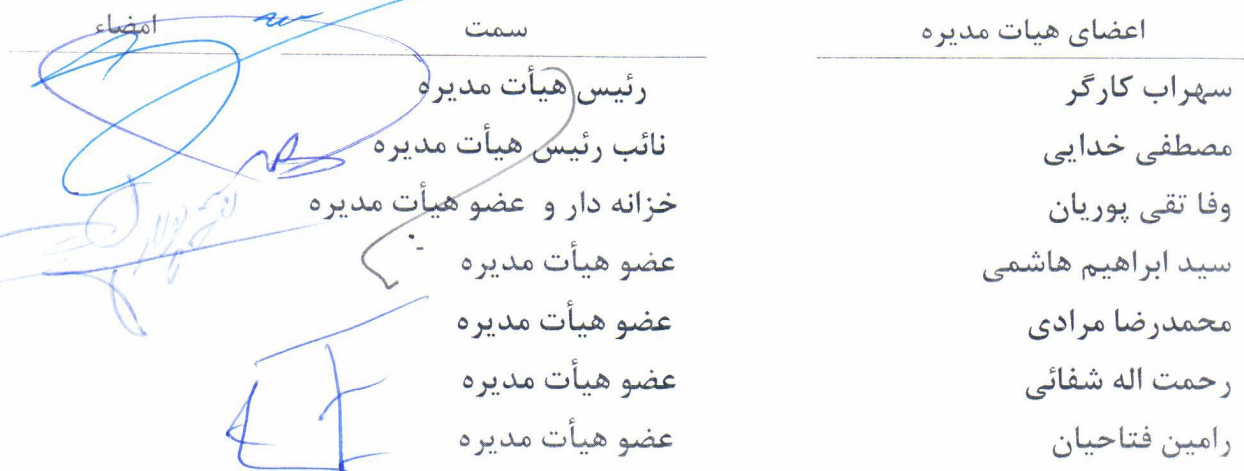 اعضای هیات مدیره سمت امضاء
سهراب کارگر رئیس هیأت مدیره
مصطفی خدایی نائب رئیس هیأت مدیره
وفا تقی پوریان خزانه دار و عضو هیأت مدیره
سید ابراهیم هاشمی عضو هیأت مدیره
محمدرضا مرادی عضو هیأت مدیره
رحمت اله شفائی عضو هیأت مدیره
رامین فتاحیان عضو هیأت مدیره